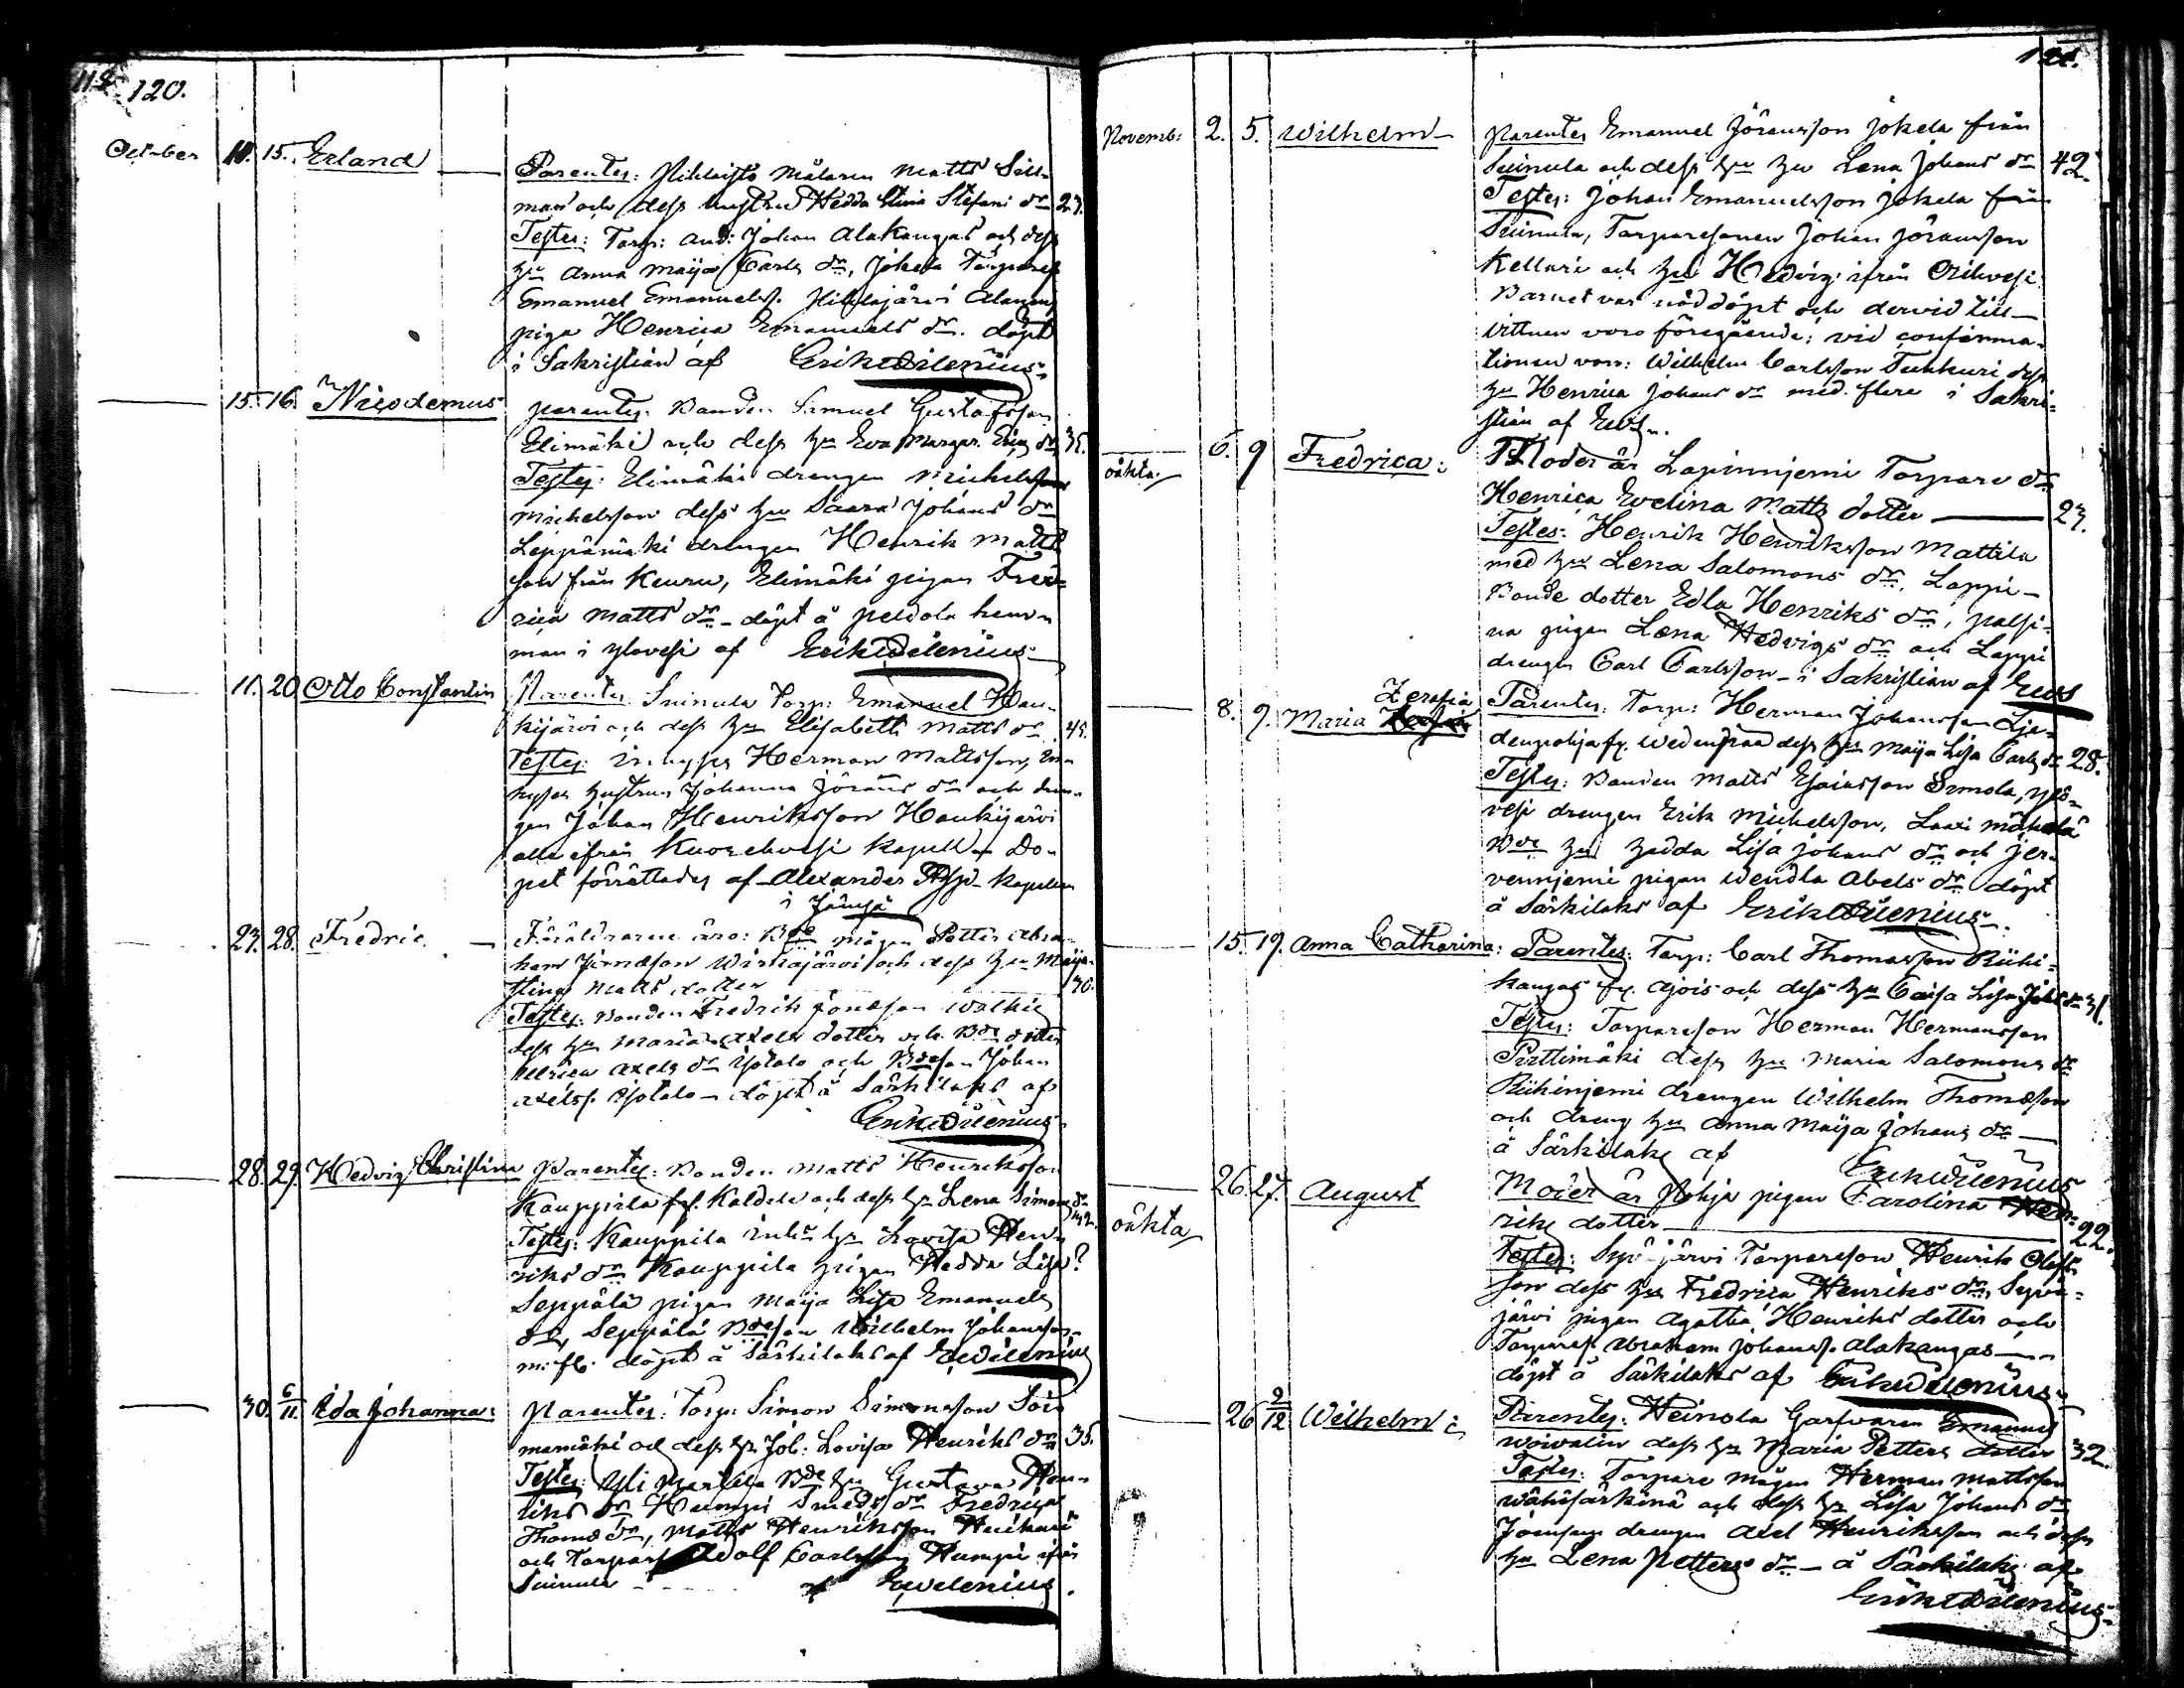 119 120.
October 10. 15. Erland
Parentes: målaren Matts Sill-
man och dess hustru Hedda Stina Stefani dr 27.
Testes: Torp: And: Johan Alakangas och dess
hu Anna Maija Carls dr, Jokela Torpares.
Emanuel Emanuelss. Alanen
piga Henrica Emanuels dr. döpt
i Sakristian af Erik Wilenius
15. 16. Nicodemus
parentes: Bonden Samuel Gustafsson
Elimäki och dess hu Eva Margar. Erics dr 35.
Testes: Elimäki drengen Michel
Michelsson dess hu Saara Johans dr
Leppämäki drengen Henrik Matts
son från Keuru, Elimäki pigan Fred-
rica Matts dr - döpt å Peldola hem-
man i Ylovesi af Erik Wilenius
11. 20. Otto Constantin
Parentes: Suinula Torp: Emanuel Hau-
kijärvi och dess hu Elisabeth Matts dr 45.
Testes: inhyses Herman Mattsson, in-
hyses hustrun Johanna Jörans dr och dren-
gen Johan Henriksson Haukijärvi
alla ifrån Kuorehvesi Kapell - Do-
pet förrättades af Alexander Kapellan
i Jämsä
27. 28. Fredric.
Föräldrarne äro: Bde mågen Petter Abra-
ham Jonasson Wirkajärvi och dess hu Maija
Stina Matts dotter 30.
Testes: Bonden Fredrik Jonasson
dess hu Maria Axels dotter och Bde dotter
Ulrica Axels dr Isotalo och Bdeson Johan
Axelss. Isotalo - döpt å Särkilaks af
Erik Wilenius
28. 29. Hedvig Christina
Parentes: Bonden Matts Henriksson
Kauppila och dess hu Lena Simons dr 42.
Testes: Kauppila inhs hu Lovisa Hen-
riks dr Kauppila pigan Hedda Lisa?
Seppälä pigan Maija Lisa Emanuels
dr, Seppälä Bdeson Wilhelm Johansson
m: fl: döpt å Särkilaks af E Wilenius
30. 6/11. Ida Johanna:
Parentes: Torp: Simon Simonsson
mämäki och dess hu Joh: Lovisa Henriks dr 35.
Testes: Yli Bde hu Gustava Hen-
riks dr Humpi Smeds dr Fredrica
Thomas dr, Matts Henriksson
och Torpars Adolf Carlsson Humpi ifrån
Suinula af E Wilenius.
121.
Novemb: 2. 5. Wilhelm
Parentes Emanuel Jöransson Jokela från
Suinula och dess hu Lena Johans dr 42.
Testes: Johan Emanuelsson Jokela från
Suinula, Torparesonen Johan Jöransson
Kelluri och hu Hedvig ifrån Orihvesi
Barnet var nöddöpt och dervid till-
vittnen voro föregående; vid confirma-
tionen voro: Wilhelm Carlsson Tuhkuri dess
hu Henrica Johans dr med flere i Sakri-
stian af
6. 9 Fredrica:
oäkta.
Moder är Lapinnjemi Torpare dr
Henrica Evelina Matts dotter 27.
Testes: Henrik Henriksson Mattila
med hu Lena Salomons dr, Lappi-
Bonde dotter Edla Henriks dr, palsi-
na pigan Lena Hedvigs dr och Lappi
drengen Carl Carlsson - i Sakristian af
8. 9. Maria Serafia
Parentes: Torp: Herman Johansson
dess hu Maija Lisa Carls dr 28.
Testes: Bonden Matts Esaiasson Simola, Ylö-
vesi drengen Erik Michelsson, Mäkelä
Bde hu Hedda Lisa Johans dr och Jer-
vennjemi pigan Wendla Abels dr döpt
å Särkilaks af Erik Wilenius.
15. 19. Anna Catharina:
Parentes: Torp: Carl Thomasson Riihi-
kangas och dess hu Caisa Lisa Johs dr 31.
Testes: Torpareson Herman Hermansson
Perttimäki dess hu Maria Salomons dr
Riihinjemi drengen Wilhelm Thomasson
och dreng hu Anna Maija Johans dr
å Särkilaks af Erik Wilenius
26. 27. August
oäkta
Moder är Pohja pigan Carolina Hen-
riks dotter 22.
Testes: Syväjärvi Torpareson Henrik Olofs-
son dess hu Fredrica Henriks dr, Syvä-
järvi pigan Agatha Henriks dotter och
Torpares. Abraham Johanss. Alakangas
döpt å Särkilaks af Erik Wilenius
26 9/12 Wilhelm:
Parentes: Heinola Garfvaren Emanuel
Woivalin dess hu Maria Petters dotter 32.
Testes: Torpare mågen Herman Mattsson
och dess hu Lisa Johans dr
drengen Axel Henriksson och dess
hu Lena Petters dr - å Särkilaks af
Erik Wilenius